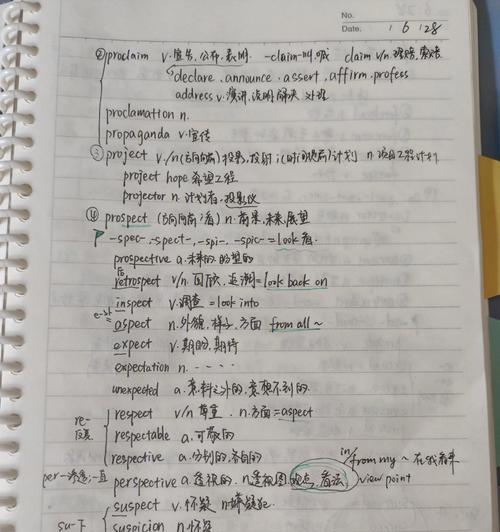 No.
Date. 6 28
② proclaim v.宣告,公布,表明. -claim-叫,喊 claim v/n.
declare, announce, assert, affirm, profess
address v.演讲,说明 解决,处理
proclamation n.
propaganda v.宣传
③ project v./n(方向向前)投影,投射;(时间提前)计划 n.项目工程计划
project hope 希望工程
projector n.计划者,投影仪
④ prospect (方向向前看) n.前景,未来,展望
-spec-, -spect-, -spi-, -spic- = look 看.
prospective a.未来的
后
retrospect v/n.回顾,追溯=look back on
inspect v.调查 =look into
aspect n.外貌,样子,方面 from all ~
expect v.期盼,期待
expectation n. . . . .
unexpected a.意料之外的,意想不到的.
re- respect v/n 尊重. n.方面=aspect
respectable a.可敬的
respective a.分别的,各自的
in from my ~ 在我看来
per- 一直 perspective a.透视的. n透视图 观点,看法. view point
suspect v.怀疑 n嫌疑犯
su-下 suspicion n.怀疑